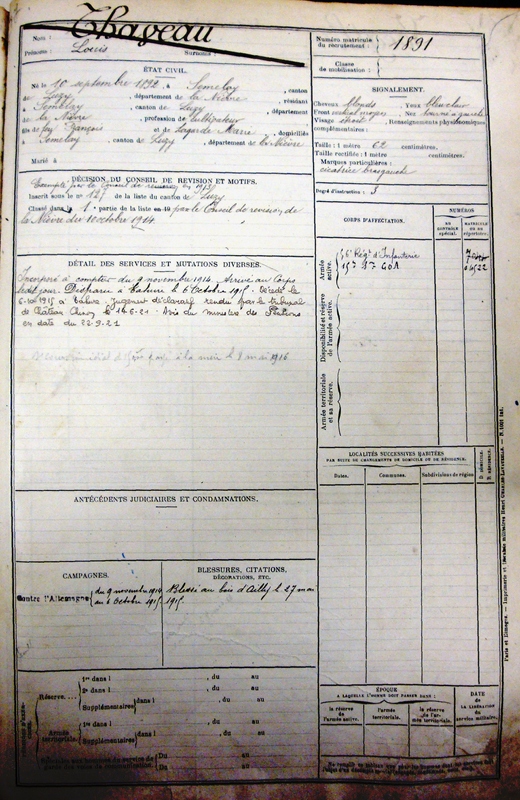 Nom : Thaveau
Prénoms : Louis Surnoms :
Numéro matricule du recrutement : 1891
Classe de mobilisation :
ÉTAT CIVIL.
Né le 10 septembre 1892, à Semelay, canton
de Luzy, département de la Nièvre, résidant
à Semelay, canton de Luzy, département
de la Nièvre, profession de cultivateur
fils de feu François et de Marie, domiciliés
à Semelay, canton de Luzy, département de la Nièvre
Marié à
SIGNALEMENT.
Cheveux blonds Yeux bleu clair
Front moyen Nez
Visage Renseignements physionomiques
complémentaires :
Taille : 1 mètre 62 centimètres.
Taille rectifiée : 1 mètre centimètres.
Marques particulières :
cicatrice bras gauche
Degré d'instruction : 3
DÉCISION DU CONSEIL DE REVISION ET MOTIFS.
Exempté par le Conseil de revision en 1913
Inscrit sous le n° 127 de la liste du canton de Luzy
Classé dans la 1e partie de la liste en par le Conseil de revision de
la Nièvre du 10 octobre 1914.
DÉTAIL DES SERVICES ET MUTATIONS DIVERSES.
Incorporé à compter du 9 novembre 1914. Arrivé au Corps
ledit jour. Disparu à Tahure le 6 Octobre 1915. Décédé le
6-10-1915 à Tahure. Jugement déclaratif rendu par le tribunal
de Château Chinon le 14-6-21. Avis du ministre des Pensions
en date du 22-9-21
à la mairie le 8 mai 1916
CORPS D'AFFECTATION.
NUMÉROS
AU CONTRÔLE SPÉCIAL.
MATRICULE OU AU RÉPERTOIRE.
Armée active.
56e Régt d'Infanterie
Disponibilité et réserve de l'armée active.
Armée territoriale et sa réserve.
LOCALITÉS SUCCESSIVES HABITÉES
PAR SUITE DE CHANGEMENTS DE DOMICILE OU DE RÉSIDENCE.
Dates. Communes. Subdivisions de région. D. DOMICILE. R. RÉSIDENCE.
ANTÉCÉDENTS JUDICIAIRES ET CONDAMNATIONS.
CAMPAGNES.
Contre l'Allemagne du 9 novembre 1914
au 6 Octobre 1915
BLESSURES, CITATIONS,
DÉCORATIONS, ETC.
Blessé au bois d'Ailly le 27 mai
1915.
Réserve....
1re dans l , du au
2e dans l , du au
Supplémentaires dans l , du au
Armée territoriale.
1re dans l , du au
Supplémentaires dans l , du au
Du au
Du au
ÉPOQUE
A LAQUELLE L'HOMME DOIT PASSER DANS :
la réserve de l'armée active.
l'armée territoriale.
la réserve de l'armée territoriale.
DATE
DE LA LIBÉRATION
du service militaire.